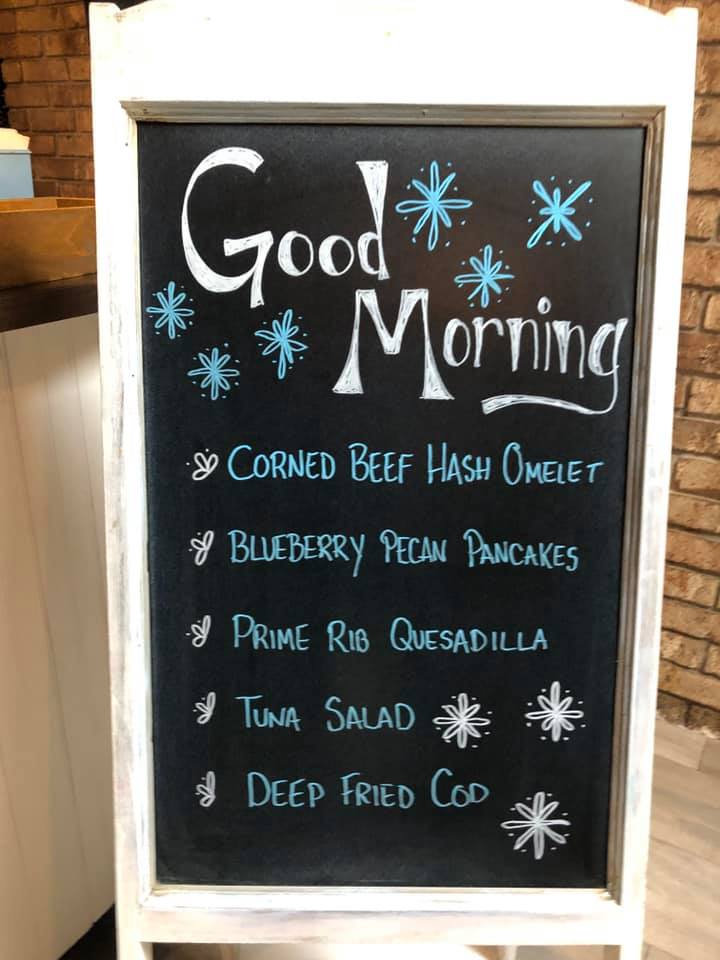 Good
Morning
CORNED BEEF HASH OMELET
BLUEBERRY PECAN PANCAKES
PRIME RIB QUESADILLA
TUNA SALAD
DEEP FRIED COD